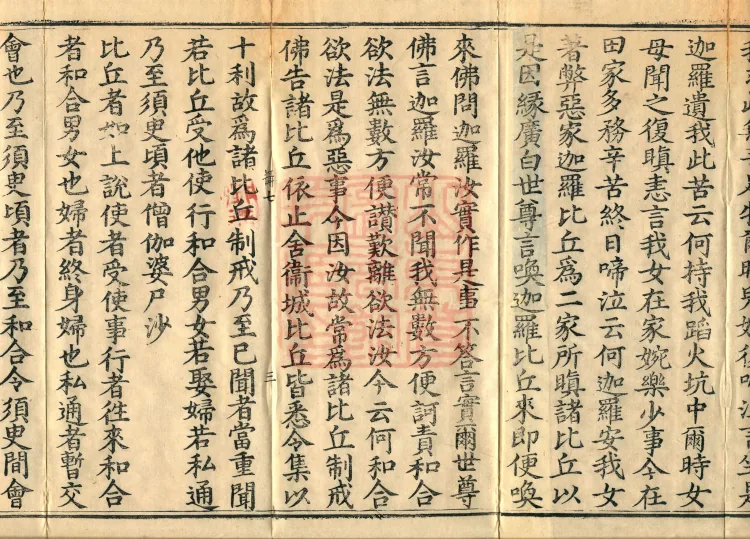 迦羅遺我此苦云何持我蹈火坑中爾時女
母聞之復瞋恚言我女在家婉樂少事今在
田家多務辛苦終日啼泣云何迦羅安我女
著弊惡家迦羅比丘爲二家所瞋諸比丘以
是因緣廣白世尊言喚迦羅比丘來即便喚
來佛問迦羅汝實作是事不答言實爾世尊
佛言迦羅汝常不聞我無數方便訶責和合
欲法無數方便讃歎離欲法汝今云何和合
欲法是爲惡事今因汝故常爲諸比丘制戒
佛告諸比丘依止舍衞城比丘皆悉令集以
七 三
十利故爲諸比丘制戒乃至已聞者當重聞
若比丘受他使行和合男女若娶婦若私通
乃至須臾頃者僧伽婆尸沙
比丘者如上說使者受使事行者往來和合
者和合男女也婦者終身婦也私通者暫交
會也乃至須臾頃者乃至和合令須臾間會